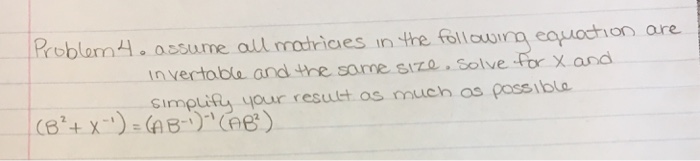 Problem 4. assume all matricies in the following equation are
invertable and the same size. Solve for X and
simplify your result as much as possible
(B² + X⁻¹) = (AB⁻¹)⁻¹(AB²)